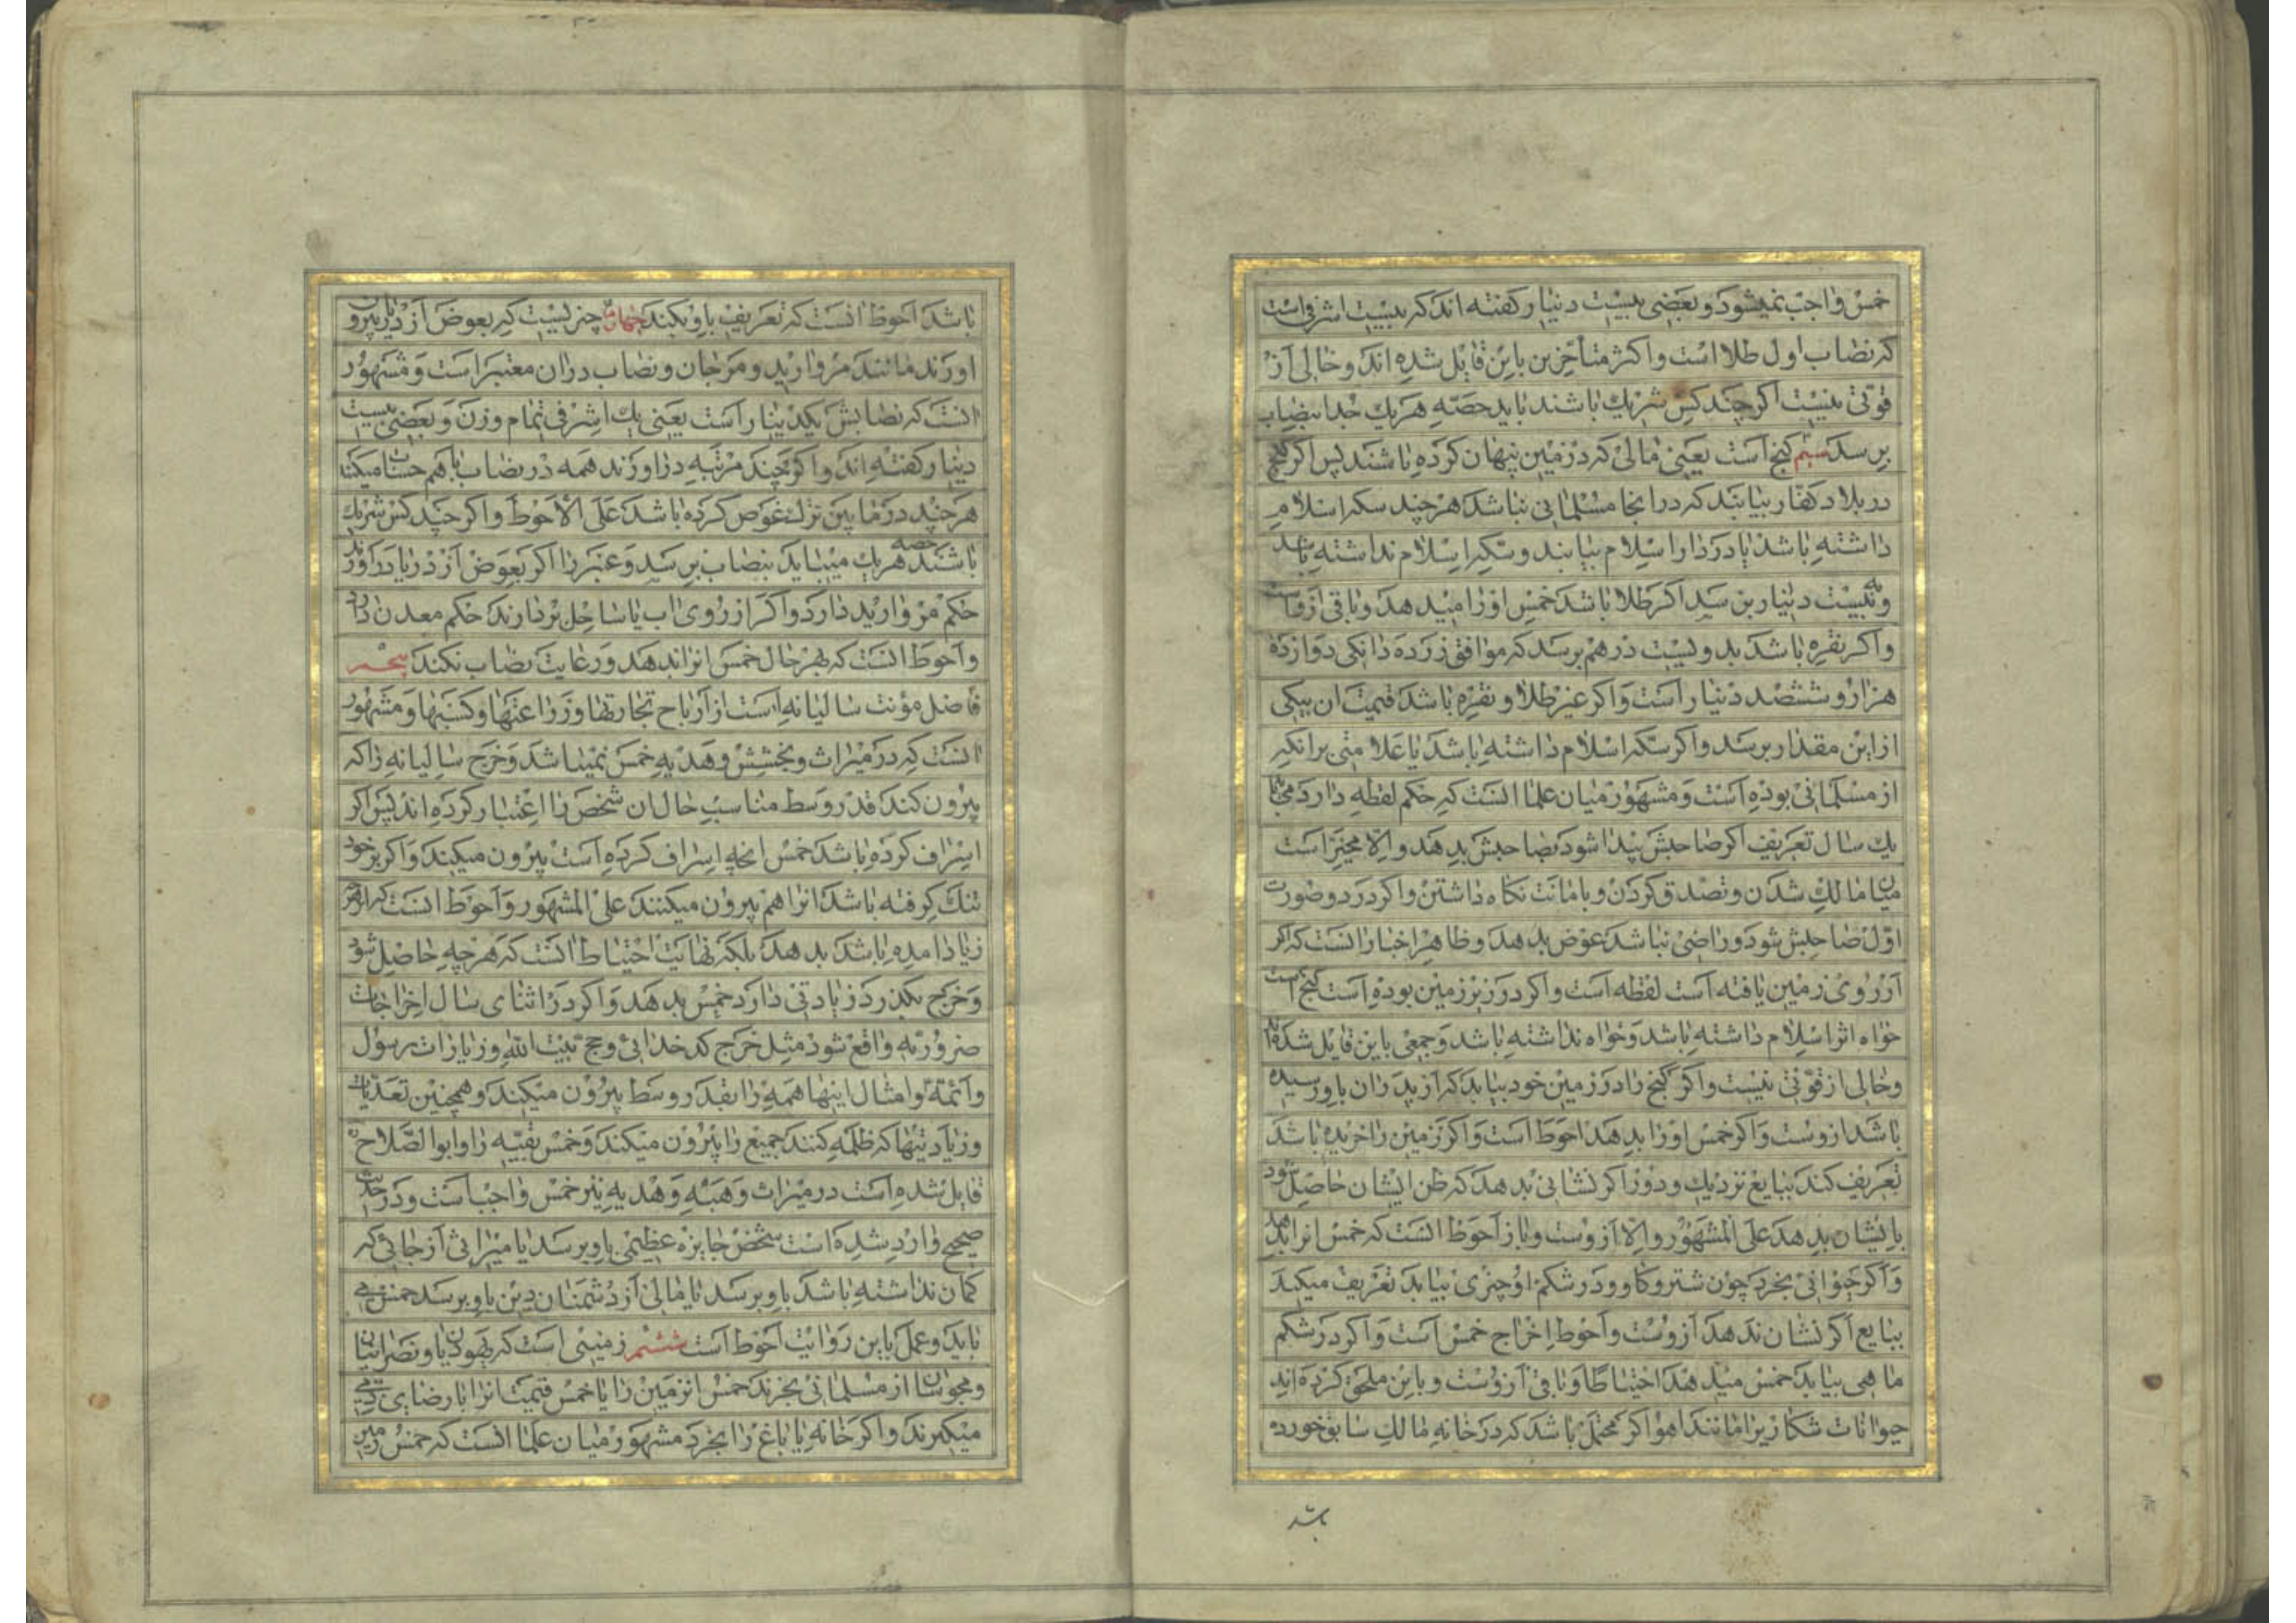 خمس واجب نمیشود و بعضی بیست دینار گفته اند که بیست اشرفی است
که نصاب اول طلا است و اکثر متأخرین باین قایل شده اند و خالی از
قوتی نیست اگر چند کس شریك باشند باید حصّه هر یك جدا بنصاب
برسد سیّم گنج است یعنی مالی که در زمین پنهان کرده باشند پس اگر گنج
در بلاد کفار بیابند که در انجا مسلمانی نباشد هر چند سکه اسلام
داشته باشد یا در دار اسلام بیابند و سکه اسلام نداشته باشد
و به بیست دینار برسد اگر طلا باشد خمس او را میدهد و باقی ازوست
و اگر نقره باشد بدویست درهم برسد که موافق زر ده دانکی دوازده
هزار و ششصد دینار است و اگر غیر طلا و نقره باشد قیمت ان بیکی
از این مقدار برسد و اگر سکه اسلام داشته باشد یا علامتی بر انکه
از مسلمانی بوده است و مشهور میان علما انست که حکم لقطه دارد
یك سال تعریف اگر صاحبش پیدا شود بصاحبش بدهد و الّا مخیّر است
میان مالك شدن و تصدق کردن و بامانت نگاه داشتن و اگر در دو صورت
اوّل صاحبش شود و راضی نباشد عوض بدهد و ظاهر اخبار انست که اگر
از روی زمین یافته است لقطه است و اگر در زیر زمین بوده است گنج است
خواه اثر اسلام داشته باشد و خواه نداشته باشد و جمعی باین قایل شده اند
و خالی از قوّتی نیست و اگر گنج را در زمین خود بیابد که از پدران باو رسیده
باشد ازوست و اگر خمس او را بدهد احوط است و اگر زمین را خریده باشد
تعریف کند ببایع نزدیك و دور اگر نشانی بدهد که ظن ایشان حاصل شود
بایشان بدهد علی المشهور و الّا ازوست و باز احوط انست که خمس انرا بدهد
و اگر حیوانی بخرد چون شتر و گاو و در شکم او چیزی بیابد تعریف میکند
ببایع اگر نشان ندهد ازوست و احوط اخراج خمس است و اگر در شکم
ماهی بیابد خمس میدهد احتیاطًا و باقی ازوست و باین ملحق کرده اند
حیوانات شکاریرا مانند اهو اگر محتمل باشد که در خانه مالك سابق خورده
باشد
باشد احوط انست که تعریف باو بکند چهارم چیزیست که بعوض از دریا بیرون
اورند مانند مروارید و مرجان و نصاب در ان معتبر است و مشهور
انست که نصابش یکدینار است یعنی یك اشرفی تمام وزن و بعضی بیست
دینار گفته اند و اگر چند مرتبه در اورند همه در نصاب باهم حساب میکند
هر چند در مابین ترك غوص کرده باشد علی الاحوط و اگر چند کس شریك
باشند حصه هر یك میباید بنصاب برسد و عنبر را اگر بعوض از دریا در اورند
حکم مروارید دارد و اگر از روی اب یا ساحل بردارند حکم معدن دارد
و احوط انست که بهر حال خمس انرا بدهد و رعایت نصاب نکند پنجم
فاضل مؤنت سالیانه است از ارباح تجارتها و زراعتها و کسبها و مشهور
انست که در میراث و بخشش و هدیه خمس نمیباشد و خرج سالیانه را که
بیرون کند قدر وسط مناسب حال ان شخص را اعتبار کرده اند پس اگر
اسراف کرده باشد خمس انچه اسراف کرده است بیرون میکند و اگر بر خود
تنك گرفته باشد انرا هم بیرون میکنند علی المشهور و احوط انست که از هر
زیاد امده باشد بدهد بلکه نهایت احتیاط انست که هر چه حاصل شود
و خرج بکذرد زیادتی دارد خمس بدهد و اگر در اثنای سال اخراجات
ضروریّه واقع شود مثل خرج کدخدائی و حج بیت الله و زیارات رسول
و ائمّه و امثال اینها همه را بقدر وسط بیرون میکند و همچنین تعدّیات
و زیادتیها که ظلمه کنند جمیع را بیرون میکند و خمس بقیه را و ابوالصّلاح
قایل شده است در میراث و هبه و هدیه نیز خمس واجبست و در حدیث
صحیح وارد شده است شخص جایزه عظیمی باو برسد یا میراثی از جائی که
گمان نداشته باشد باو برسد یا مالی از دشمنان دین باو برسد خمس می
باید و عمل باین روایت احوط است ششم زمینی است که یهودیان و نصرانیان
و مجوسان از مسلمانی بخرند خمس انزمین را یا خمس قیمت انرا با رضای
میکیرند و اگر خانه یا باغ را بخرد مشهور میان علما انست که خمس زمین